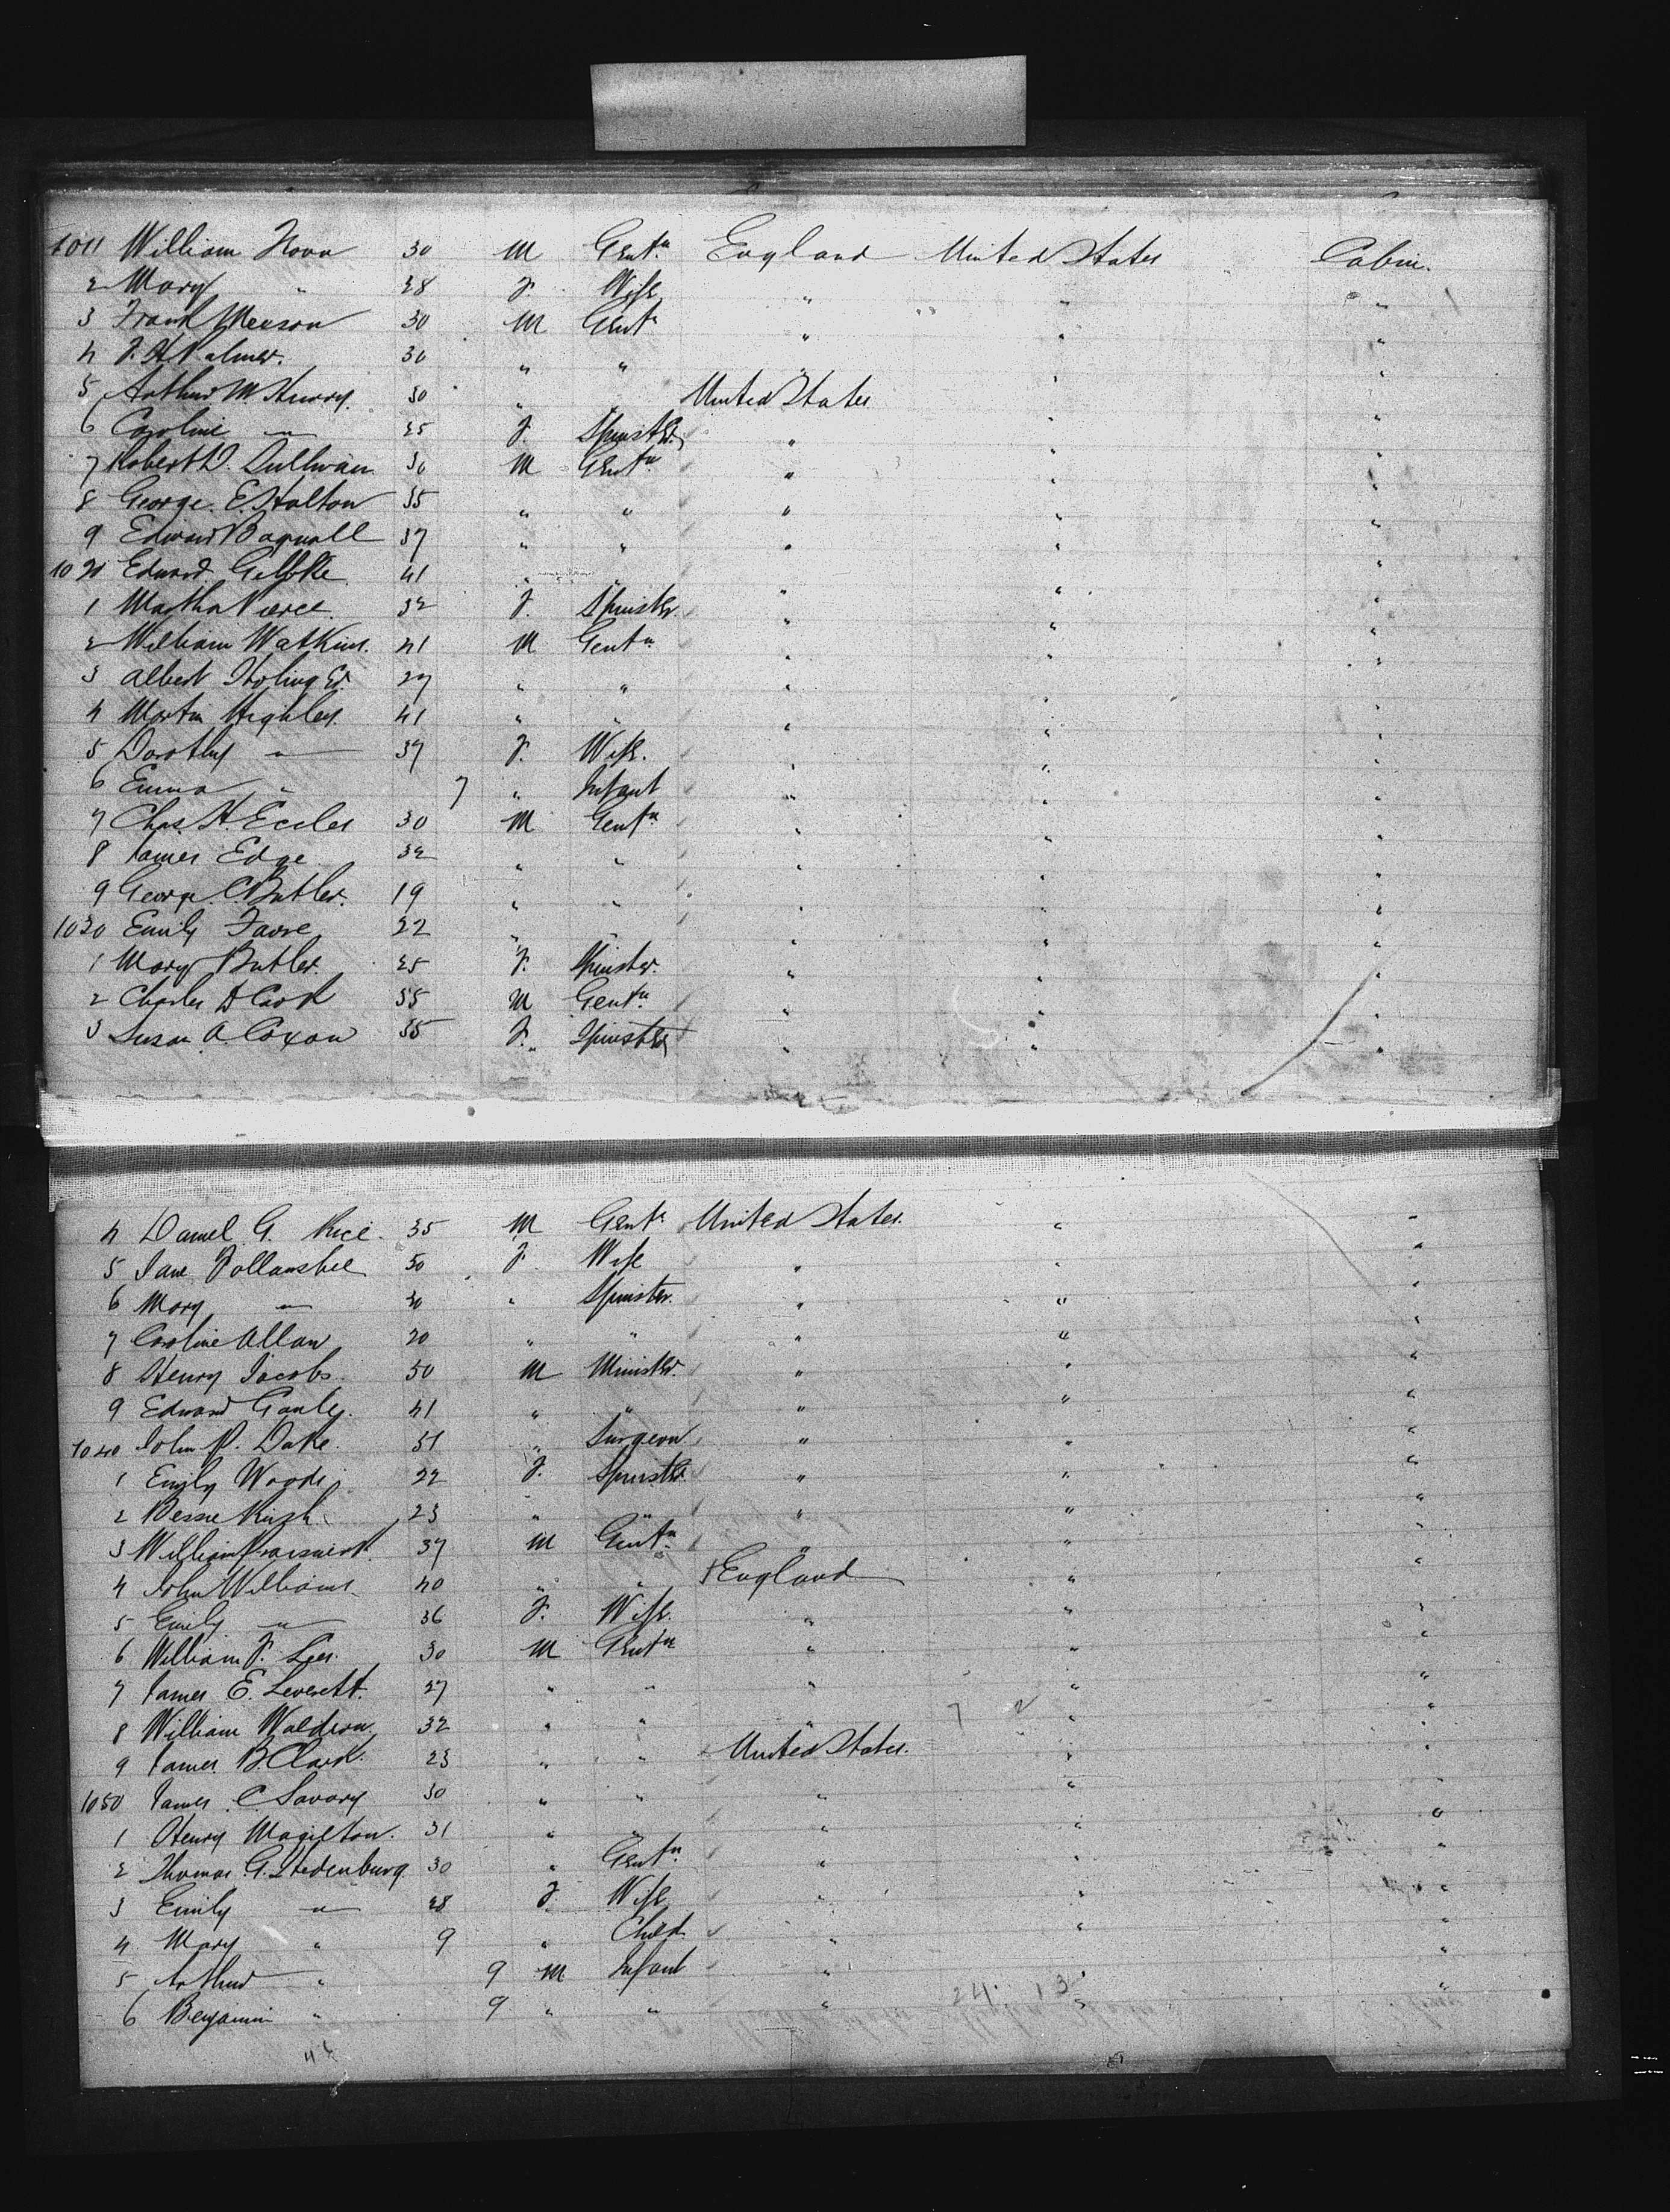 1011 William Horn 30 M Gentn England United States Cabin.
2 Mary " 28 F. Wife " " "
3 Frank Merson 30 M Gentn " " "
4 J. H. Palmer. 30 " " " " "
5 Arthur M. Henry. 30 " " United States " "
6 Caroline " 25 F. Spinster " " "
7 Robert D. Sullivan 30 M Gentn " " "
8 George. E. Halton 35 " " " " "
9 Edward Bagnall 37 " " " " "
1020 Edward 41 " " " " "
1 Martha Pierce 32 F. Spinster. " " "
2 William Watkins. 41 M Gentn " " "
3 Albert 27 " " " " "
4 Martin Highley. 41 " " " " "
5 Dorothy " 37 F. Wife. " " "
6 Emma " 7 " Infant " " "
7 Chas. H. Eccles 30 M Gentn " " "
8 James Edge 32 " " " " "
9 George. C. Butler. 19 " " " " "
1030 Emily Favre 22 " " " " "
1 Mary Butler. 25 F. Spinster. " " "
2 Charles D Cook 35 M Gentn " " "
3 Susan A. Coxon 35 F. Spinster " " "
4 Daniel G. Rice. 35 M Gentn United States. " "
5 Jane Follansbee 50 F. Wife " " "
6 Mary " 30 " Spinster. " " "
7 Caroline Allan 20 " " " " "
8 Henry Jacobs. 50 M Minister. " " "
9 Edward Ganley. 41 " " " " "
1040 John P. Dake. 51 " Surgeon " " "
1 Emily Woods 22 F. Spinster. " " "
2 Bessie Rush 23 " " " " "
3 William 37 M Gentn " " "
4 John Williams 40 " " England " "
5 Emily " 36 F. Wife. " " "
6 William F. Lees. 30 M Gentn " " "
7 James E. Leverett. 27 " " " " "
8 William Waldron. 32 " " " " "
9 James B. Clark. 23 " " United States. " "
1050 James C. Savory 30 " " " " "
1 Henry Magilton. 31 " " " " "
2 Thomas G. Stedenburg 30 " Gentn " " "
3 Emily " 28 F. Wife " " "
4 Mary " 9 " Child " " "
5 Arthur " 9 M Infant " " "
6 Benjamin " 9 " " " " "